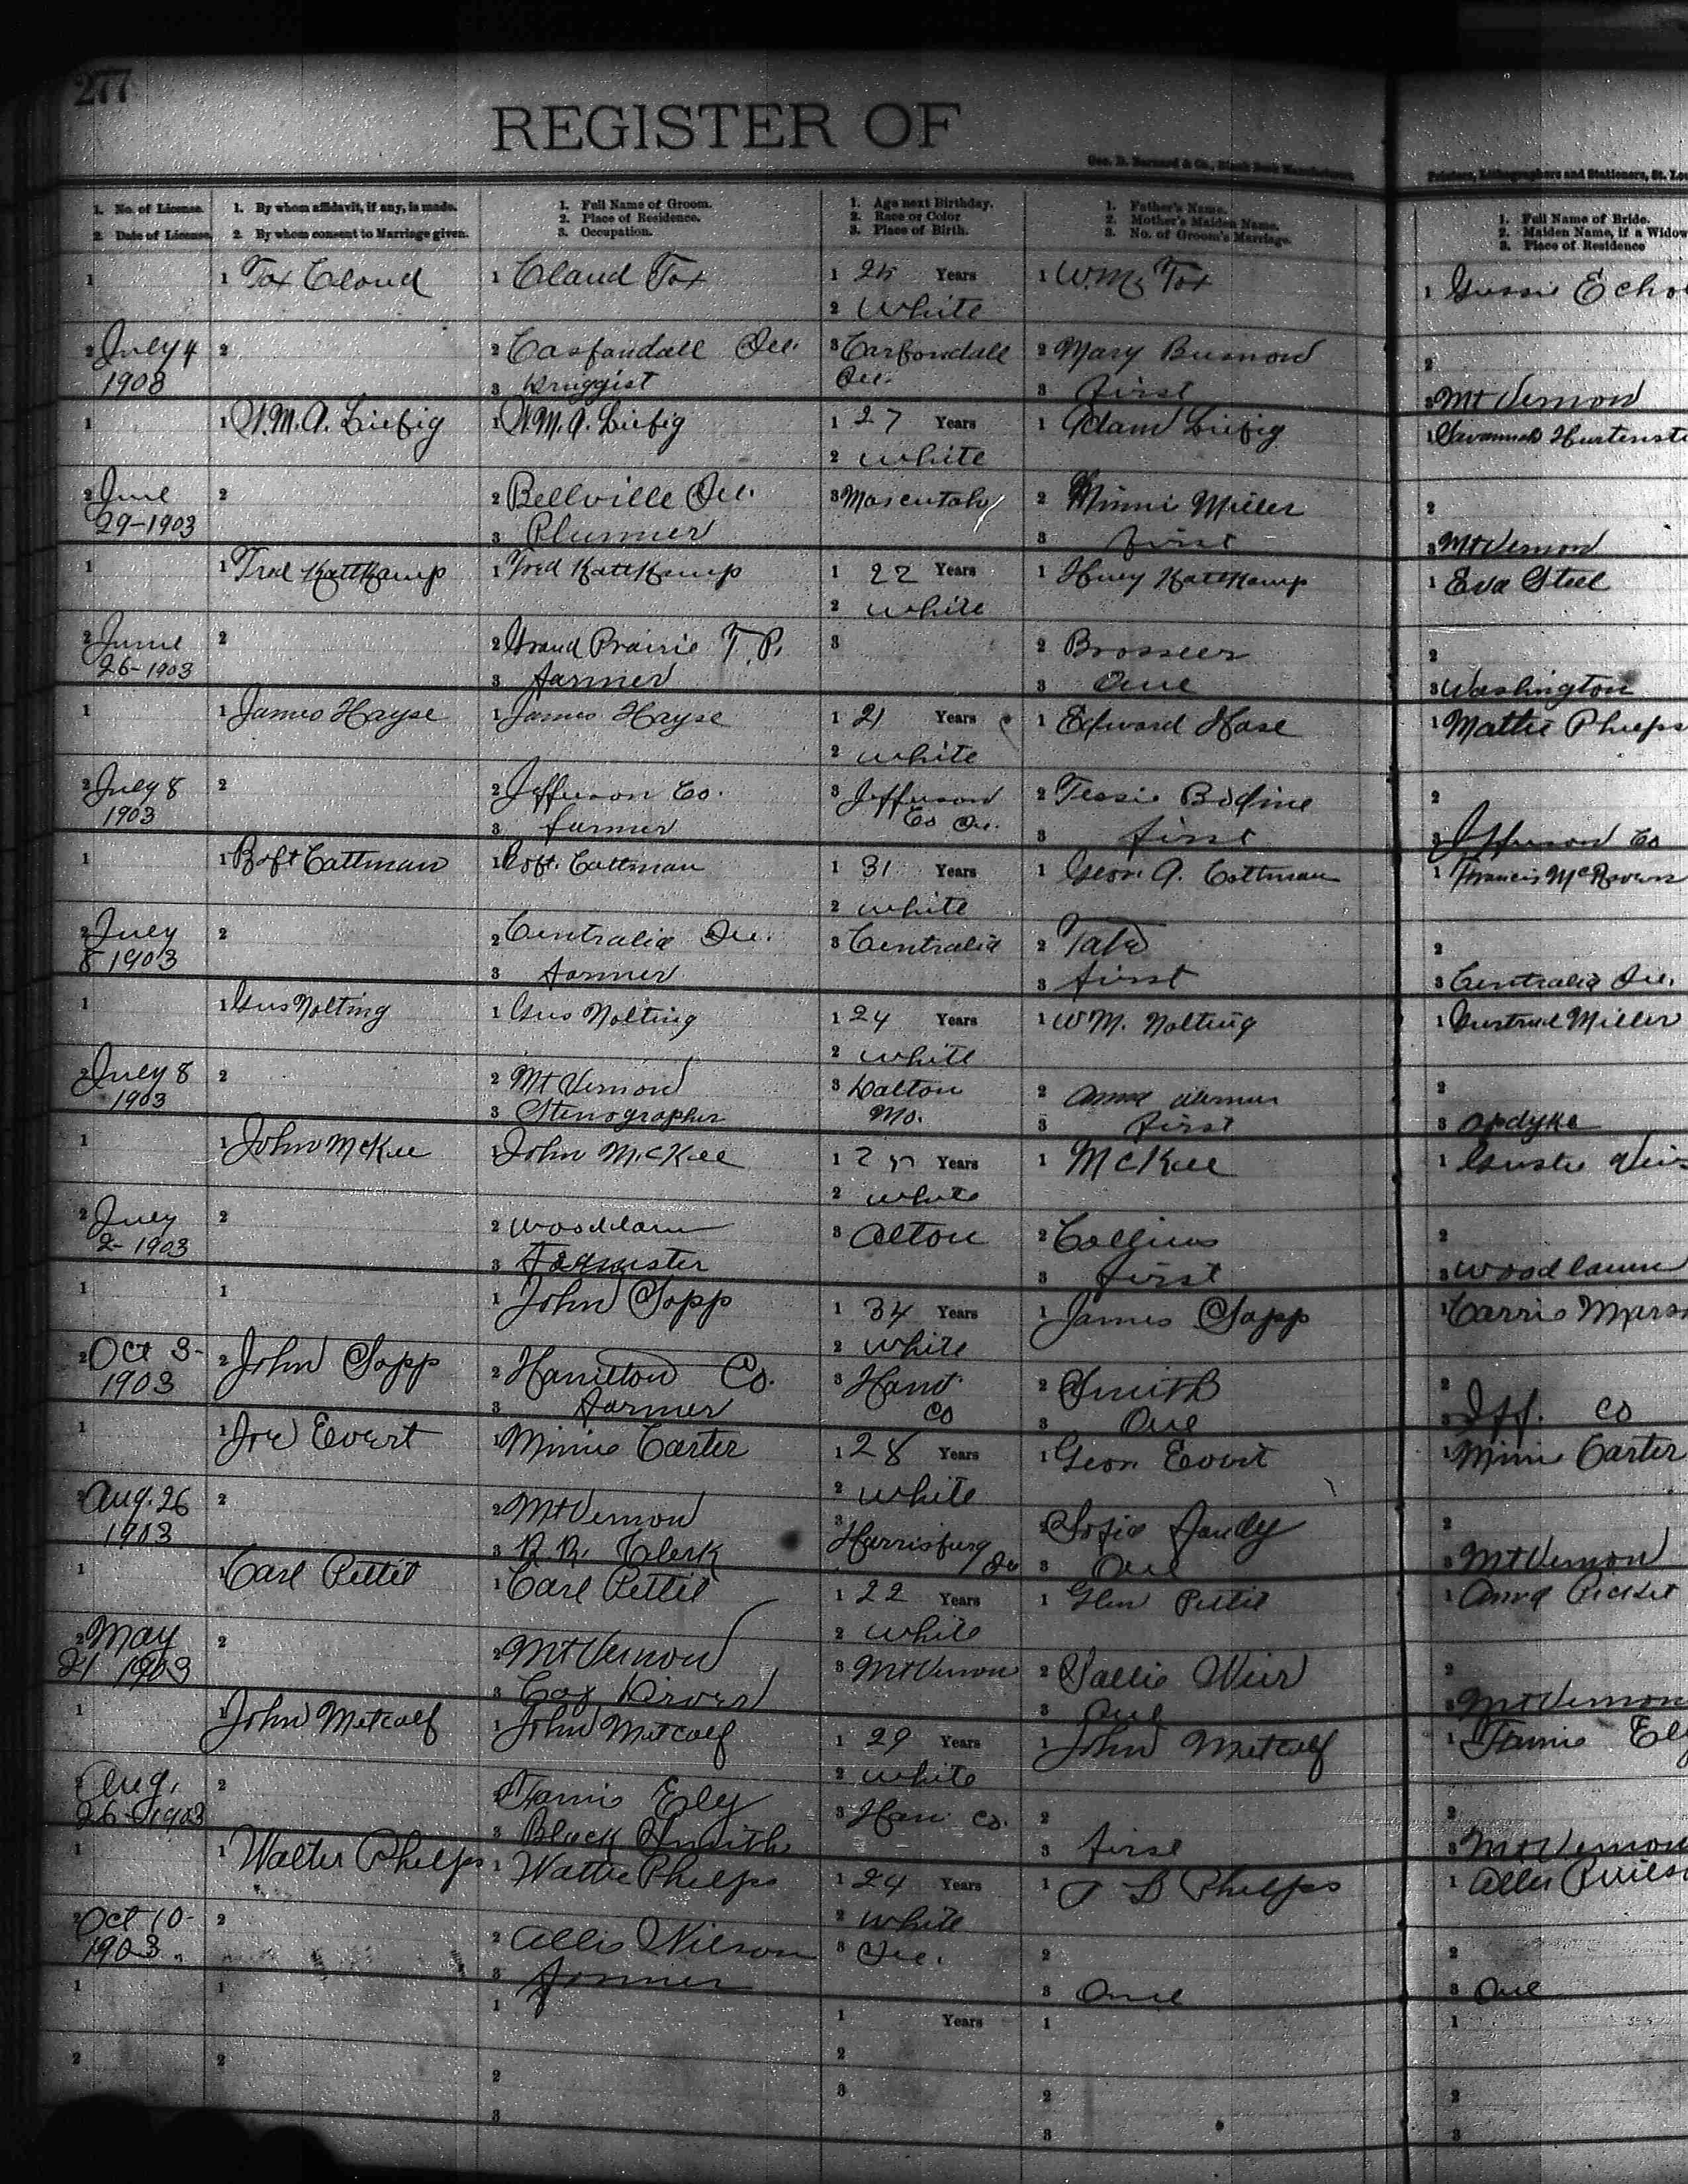 277
REGISTER OF
Geo. D. Barnard & Co., Blank Book Manufacturers,
Printers, Lithographers and Stationers, St. Lou
1. No. of License.
2. Date of License.
1. By whom affidavit, if any, is made.
2. By whom consent to Marriage given.
1. Full Name of Groom.
2. Place of Residence.
3. Occupation.
1. Age next Birthday.
2. Race or Color
3. Place of Birth.
1. Father's Name.
2. Mother's Maiden Name.
3. No. of Groom's Marriage.
1. Full Name of Bride.
2. Maiden Name, if a Widow
3. Place of Residence
1 1 Fox Cloud 1 Claud Fox 1 Years 1 W.M. Fox 1 Gussie Echo
2 White
2 July 4 2 2 Carbondall Ill. 3 Carbondall 2 Mary 2
1903 3 Druggist Ill. 3 first 3 Mt Vernon
1 1 W.M.A. Liebig 1 W.M.A. Liebig 1 27 Years 1 Adam Liebig 1 Savannah Hurtenst
2 White
2 June 2 2 Bellville Ill. 3 Mascutah 2 Minni Miller 2
29-1903 3 Plummer 3 first 3 Mt Vernon
1 1 Fred KattKamp 1 Fred KattKamp 1 22 Years 1 Huey KattKamp 1 Eva Steel
2 White
2 June 2 2 Grand Prairie T.P. 3 2 2
26-1903 3 farmer 3 One 3 Washington
1 1 James Hayse 1 James Hayse 1 21 Years 1 Edward Hase 1 Mattie Phelps
2 White
2 July 8 2 2 Jefferson Co. 3 Jefferson 2 Tessie Bodine 2
1903 3 farmer Co Ill. 3 first 3 Jefferson Co
1 1 Robt Cattman 1 Robt. Cattman 1 31 Years 1 Geo. A. Cottman 1 Francis
2 White
2 July 2 2 Centralia Ill. 3 Centralia 2 Tate 2
8 1903 3 farmer 3 first 3 Centralia Ill.
1 1 Gus Nolting 1 Gus Nolting 1 24 Years 1 WM. Nolting 1 Gertrude Miller
2 White
2 July 8 2 2 Mt Vernon 3 Dalton 2 2
1903 3 Stenographer Mo. 3 first 3 Opdyke
1 1 John McKee 1 John McKee 1 Years 1 McKee 1 Gustie
2 White
2 July 2 2 Woodlawn 3 Alton 2 Collins 2
2-1903 3 Teamster 3 first 3 Woodlawn
1 1 1 John Sopp 1 34 Years 1 James Sapp 1 Carrie
2 White
2 Oct 3- 2 John Sopp 2 Hamilton Co. 3 Ham 2 Smith 2
1903 3 farmer Co 3 One 3 Jeff. Co
1 1 Joe Evert 1 Minnie Carter 1 28 Years 1 Geo. Evert 1 Minnie Carter
2 White
2 Aug. 26 2 2 Mt Vernon 3 Harrisburg 2 Sofia Jandy 2
1903 3 R.R. Clerk Ill 3 One 3 Mt Vernon
1 1 Carl Pettit 1 Carl Pettit 1 22 Years 1 Glen Pettit 1 Anna
2 White
2 May 2 2 Mt Vernon 3 Mt Vernon 2 Sallie Weir 2
21 1903 3 Driver 3 One 3 Mt Vernon
1 1 John Metcalf 1 John Metcalf 1 29 Years 1 John Metcalf 1 Fannie Ely
2 White
2 Aug. 2 2 Fannie Ely 3 Ham Co. 2 2
26-1903 3 Black Smith 3 first 3 Mt Vernon
1 1 Walter Phelps 1 Walter Phelps 1 24 Years 1 J B Phelps 1 Allis
2 White
2 Oct 10- 2 2 Allis Wilson 3 Ill. 2 2
1903 3 farmer 3 One 3 One
1 1 1 1 Years 1 1
2 2 2 2 2 2
3 3 3 3